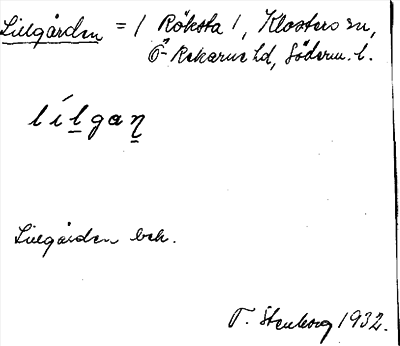 Lillgården = / Röksta /, Klosters sn,
Ö-Rekarne hd, Söderm. l.
líḻgaṉ
Lillgården bek.
T. Stenborg 1932.